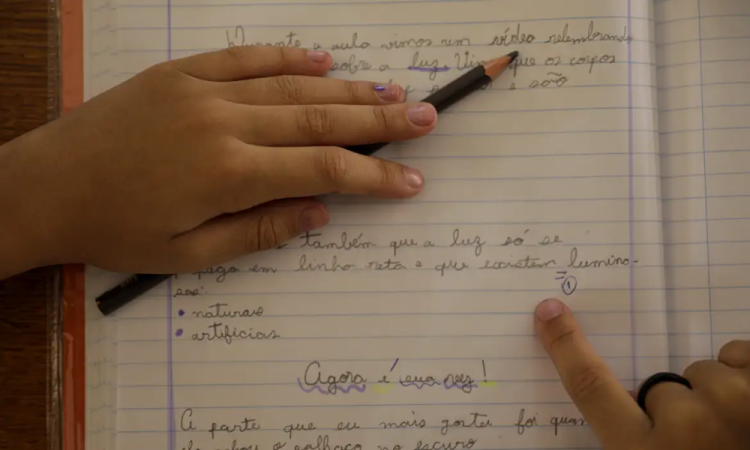 Durante a aula vimos um vídeo relembrando
sobre a luz. que os corpos
e são
também que a luz só se
paga em linha reta e que existem lumino-
sas:
• naturais
• artificias
= 1
Agora é sua vez!
A parte que eu mais gostei foi quan
o palhaço no escuro